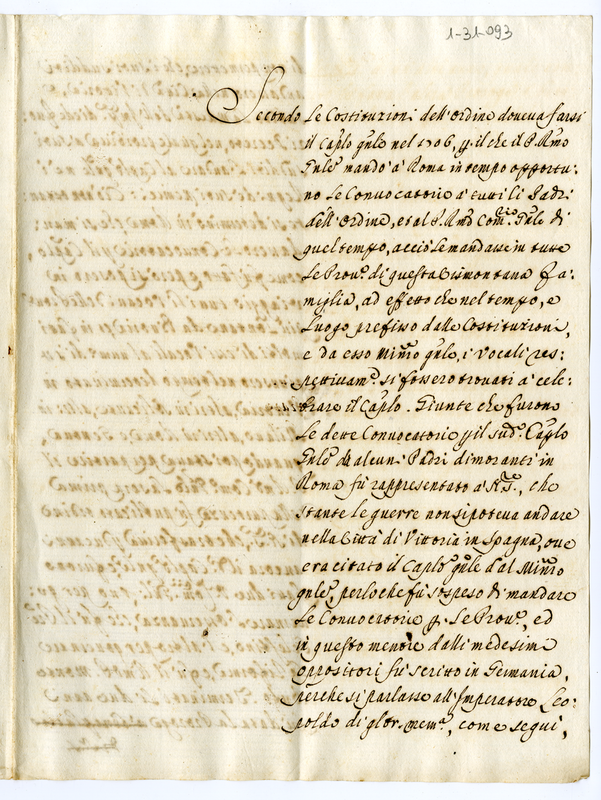 1-31-093
Secondo Le Costituzioni dell'Ordine doueua farsi
il Caplo gnle nel 1706, p il che il P. Rmo
Gnle mandò à Roma in tempo opportu:
no Le Conuocatorie à tutti li Padri
dell'Ordine, et al P. Rmo Comrio Gnle di
quel tempo, acciò Le mandasse in tutte
Le Proue di questa Cismontana Fa:
miglia, ad effetto che nel tempo, e
Luogo prefisso dalle Costituzioni,
e da esso Minro gnle, i Vocali res:
pettiuame si fossero trouati à cele:
brare il Caplo. Giunte che furono
Le dette Conuocatorie p il sudo Caplo
Gnle da alcuni Padri dimoranti in
Roma fù rappresentato à N. S., che
stante Le guerre non si poteua andare
nella Città di Vittoria in Spagna, oue
era citato il Caplo gnle dal Minro
gnle, perloche fù sospeso di mandare
Le Conuocatorie p Le Proue, ed
in questo mentre dalli medesimi
oppositori fù scritto in Germania,
perche si parlasse all'Imperatore Leo:
poldo di glor. mema, come seguì,